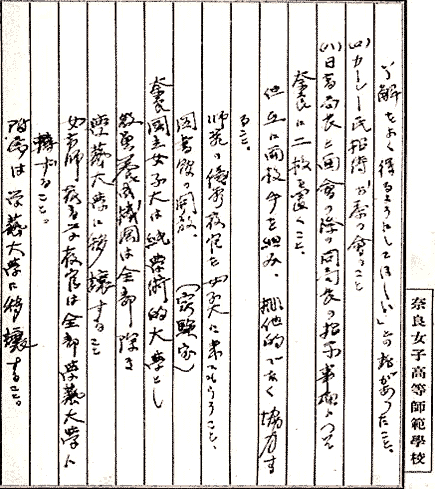 了解をよく得るようにしてほしい」との話があったこと。
(4)カーレー氏招待お茶の会のこと
(ハ)日高局長と面会の際の同局長の指示事項について
奈良に二校を置くこと。
但互に両校手を組み、排他的でなく協力す
ること。
師範の優秀教官を女子大に来てもらうこと、
図書館の開放。(実験室)
奈良国立女子大は純学術的大学とし
教員養成機関は全部除き
学芸大学に移譲すること
女高師に在る教官は全部学芸大学に
転ずること。
附属は学芸大学に移譲すること。
奈良女子高等師範學校